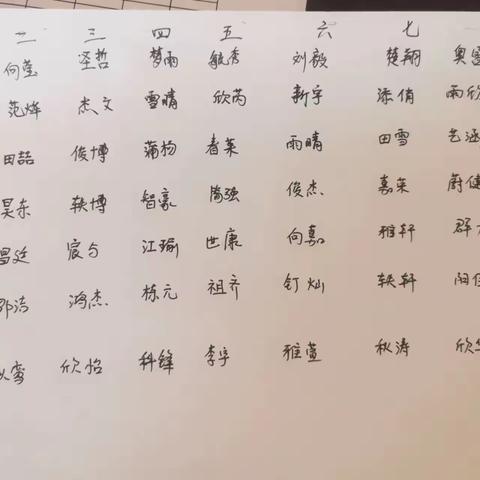 二 三 四 五 六 七
何莹 圣哲 梦雨 毓秀 刘毅 楚翔
范烨 杰文 雪晴 欣芮 新宇 添俏 雨欣
田喆 俊博 蒲扬 春莱 雨晴 田雪 艺涵
昊东 轶博 智豪 简强 俊杰 嘉荣 蔚健
昌延 宸与 江瑜 世康 向嘉 雅轩 群
邵洁 鸿杰 栋元 祖齐 钉灿 轶轩
欣怡 科锋 李宇 雅萱 秋涛 欣